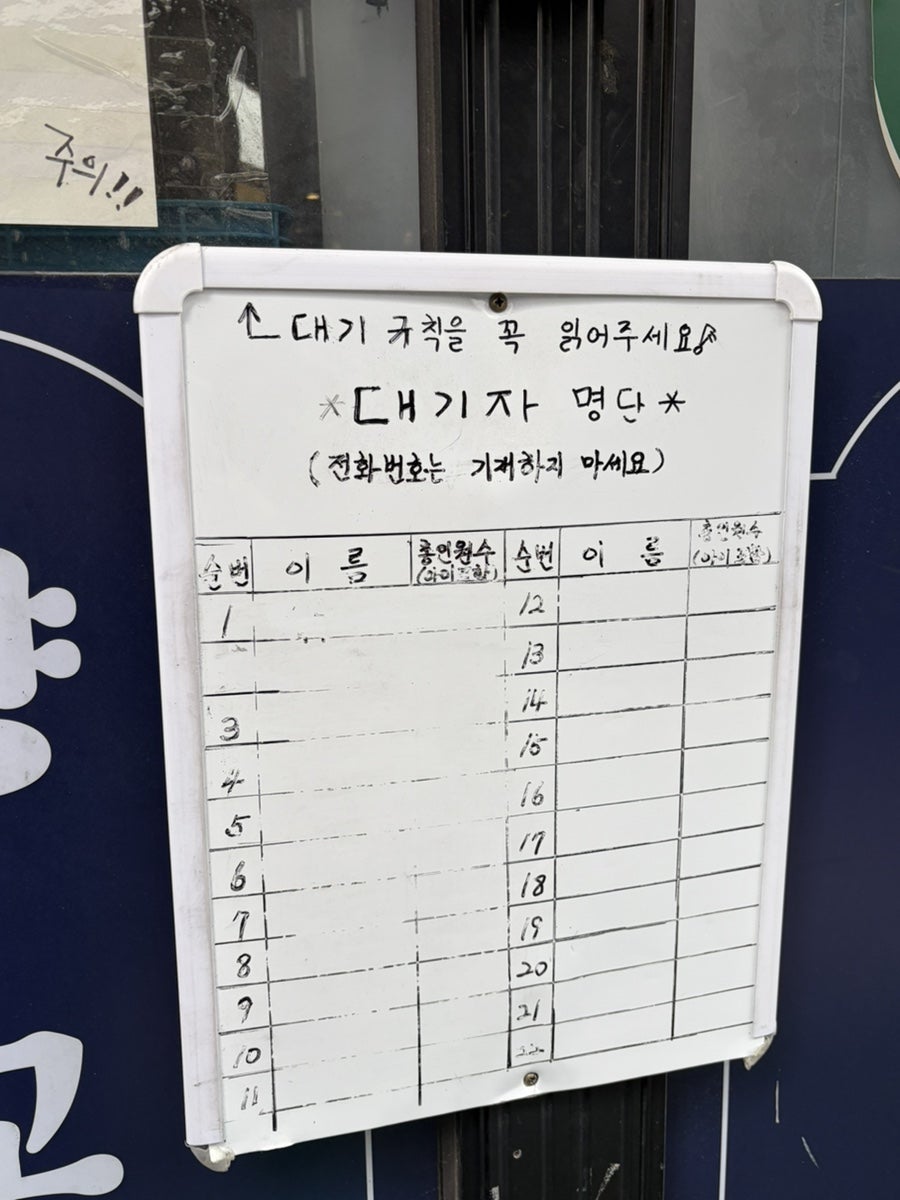 주의!!
대기 규칙을 꼭 읽어주세요
*대기자 명단*
(전화번호는 기재하지 마세요)
순번 이름 총인원수 (아이포함) 순번 이름 총인원수 (아이포함)
1 12
13
3 14
4 15
5 16
6 17
7 18
8 19
9 20
10 21
11